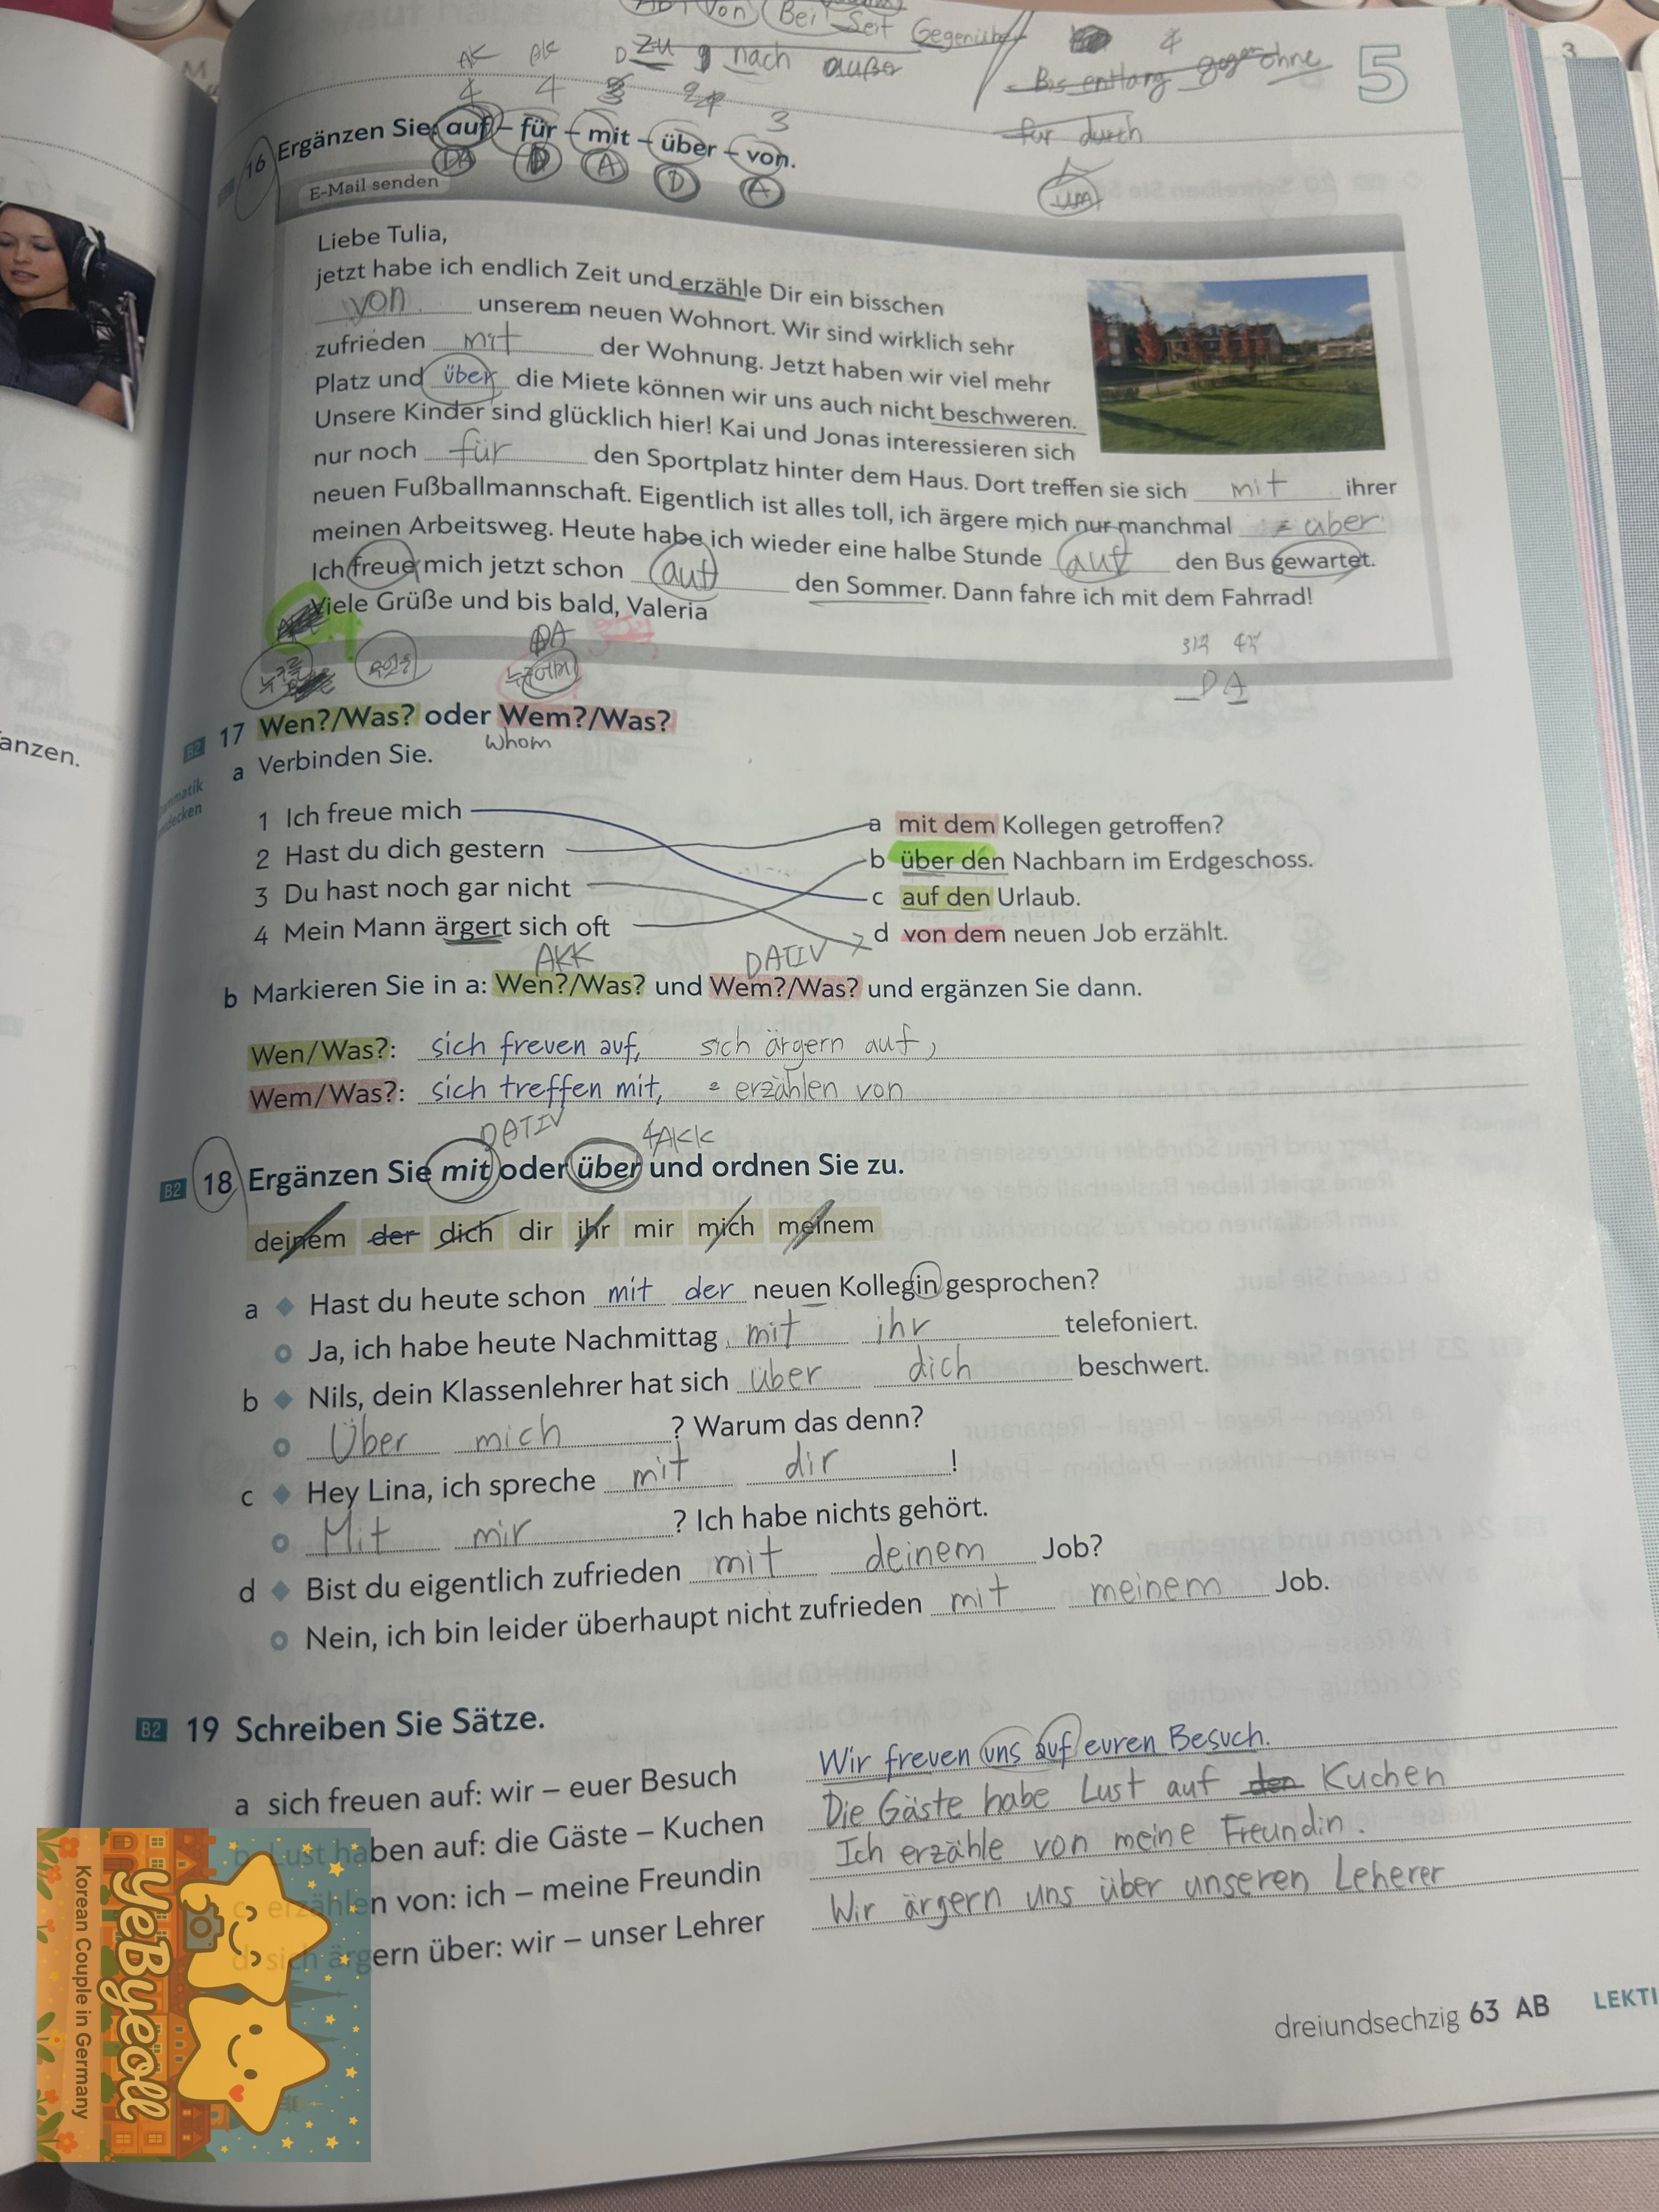 Von Bei Seit Gegenüber
zu nach außer
Bis entlang gegen ohne
für durch
um
5
3
AK AK D
4 4 3
16 Ergänzen Sie: auf – für – mit – über – von.
D A D A
E-Mail senden
Liebe Tulia,
jetzt habe ich endlich Zeit und erzähle Dir ein bisschen
von unserem neuen Wohnort. Wir sind wirklich sehr
zufrieden mit der Wohnung. Jetzt haben wir viel mehr
Platz und über die Miete können wir uns auch nicht beschweren.
Unsere Kinder sind glücklich hier! Kai und Jonas interessieren sich
nur noch für den Sportplatz hinter dem Haus. Dort treffen sie sich mit ihrer
neuen Fußballmannschaft. Eigentlich ist alles toll, ich ärgere mich nur manchmal über
meinen Arbeitsweg. Heute habe ich wieder eine halbe Stunde auf den Bus gewartet.
Ich freue mich jetzt schon auf den Sommer. Dann fahre ich mit dem Fahrrad!
Viele Grüße und bis bald, Valeria
3격 4격
D A
누구를 무엇을 누구에게
B2 17 Wen?/Was? oder Wem?/Was?
whom
a Verbinden Sie.
anzen.
1 Ich freue mich
2 Hast du dich gestern
3 Du hast noch gar nicht
4 Mein Mann ärgert sich oft
a mit dem Kollegen getroffen?
b über den Nachbarn im Erdgeschoss.
c auf den Urlaub.
d von dem neuen Job erzählt.
AKK DATIV
b Markieren Sie in a: Wen?/Was? und Wem?/Was? und ergänzen Sie dann.
Wen/Was?: sich freuen auf, sich ärgern auf,
Wem/Was?: sich treffen mit, erzählen von
DATIV 4AKK
B2 18 Ergänzen Sie mit oder über und ordnen Sie zu.
deinem der dich dir ihr mir mich meinem
a Hast du heute schon mit der neuen Kollegin gesprochen?
Ja, ich habe heute Nachmittag mit ihr telefoniert.
b Nils, dein Klassenlehrer hat sich über dich beschwert.
Über mich ? Warum das denn?
c Hey Lina, ich spreche mit dir !
Mit mir ? Ich habe nichts gehört.
d Bist du eigentlich zufrieden mit deinem Job?
Nein, ich bin leider überhaupt nicht zufrieden mit meinem Job.
B2 19 Schreiben Sie Sätze.
a sich freuen auf: wir – euer Besuch Wir freuen uns auf euren Besuch.
b Lust haben auf: die Gäste – Kuchen Die Gäste habe Lust auf den Kuchen
c erzählen von: ich – meine Freundin Ich erzähle von meine Freundin.
d sich ärgern über: wir – unser Lehrer Wir ärgern uns über unseren Leherer
dreiundsechzig 63 AB LEKTI
YeByeoll
Korean Couple in Germany